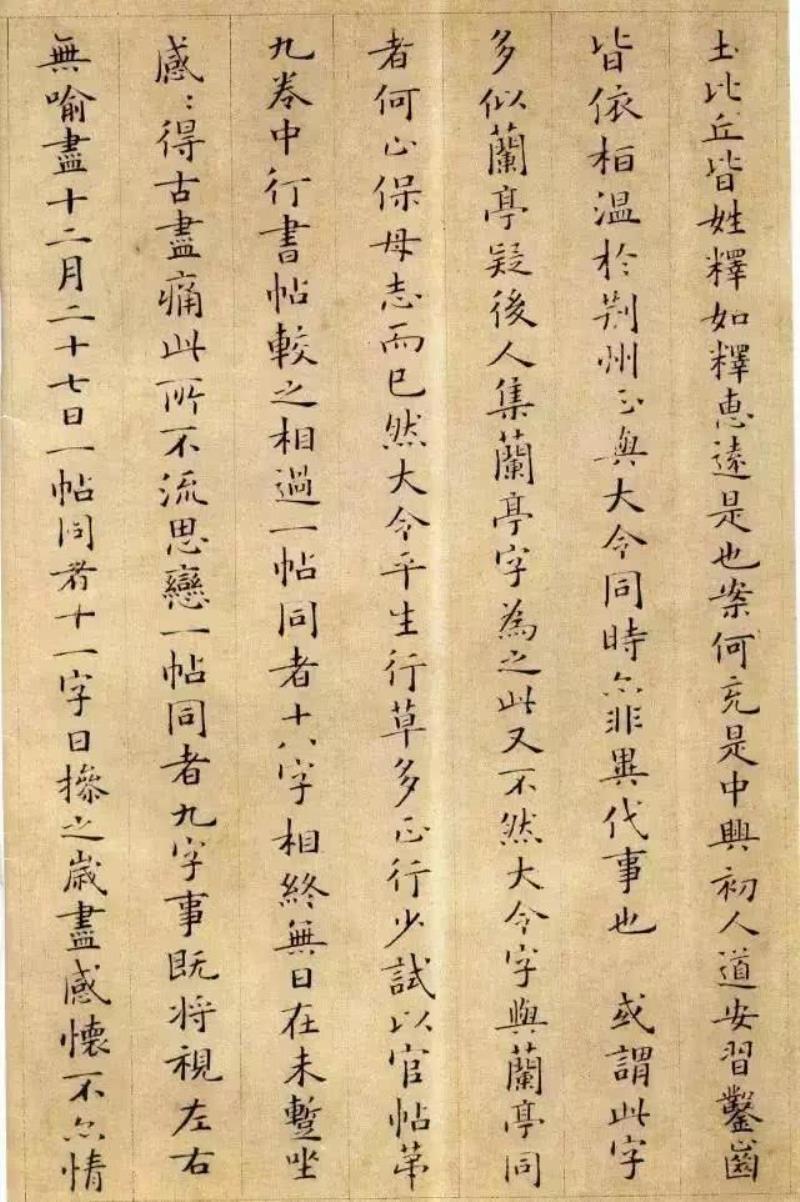 土比丘皆姓釋如釋惠遠是也案何充是中興初人道安習鑿齒
皆依桓温於荆州正與大令同時亦非異代事也 或謂此字
多似蘭亭疑後人集蘭亭字為之此又不然大令字與蘭亭同
者何止保母志而已然大令平生行草多正行少試以官帖苐
九卷中行書帖較之相過一帖同者十八字相終無日在未蹔坐
感〻得古盡痛此所不流思戀一帖同者九字事既将視左右
無喻盡十二月二十七日一帖同者十一字日操之歳盡感懷不亦情